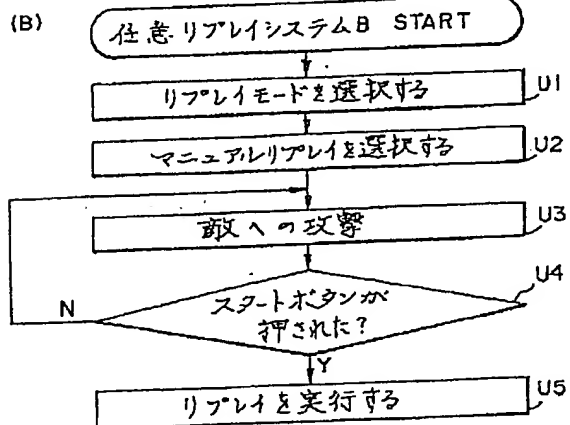 (B)
任意リプレイシステムB START
リプレイモードを選択する
U1
マニュアルリプレイを選択する
U2
敵への攻撃
U3
U4
スタートボタンが
押された?
N
Y
リプレイを実行する
U5